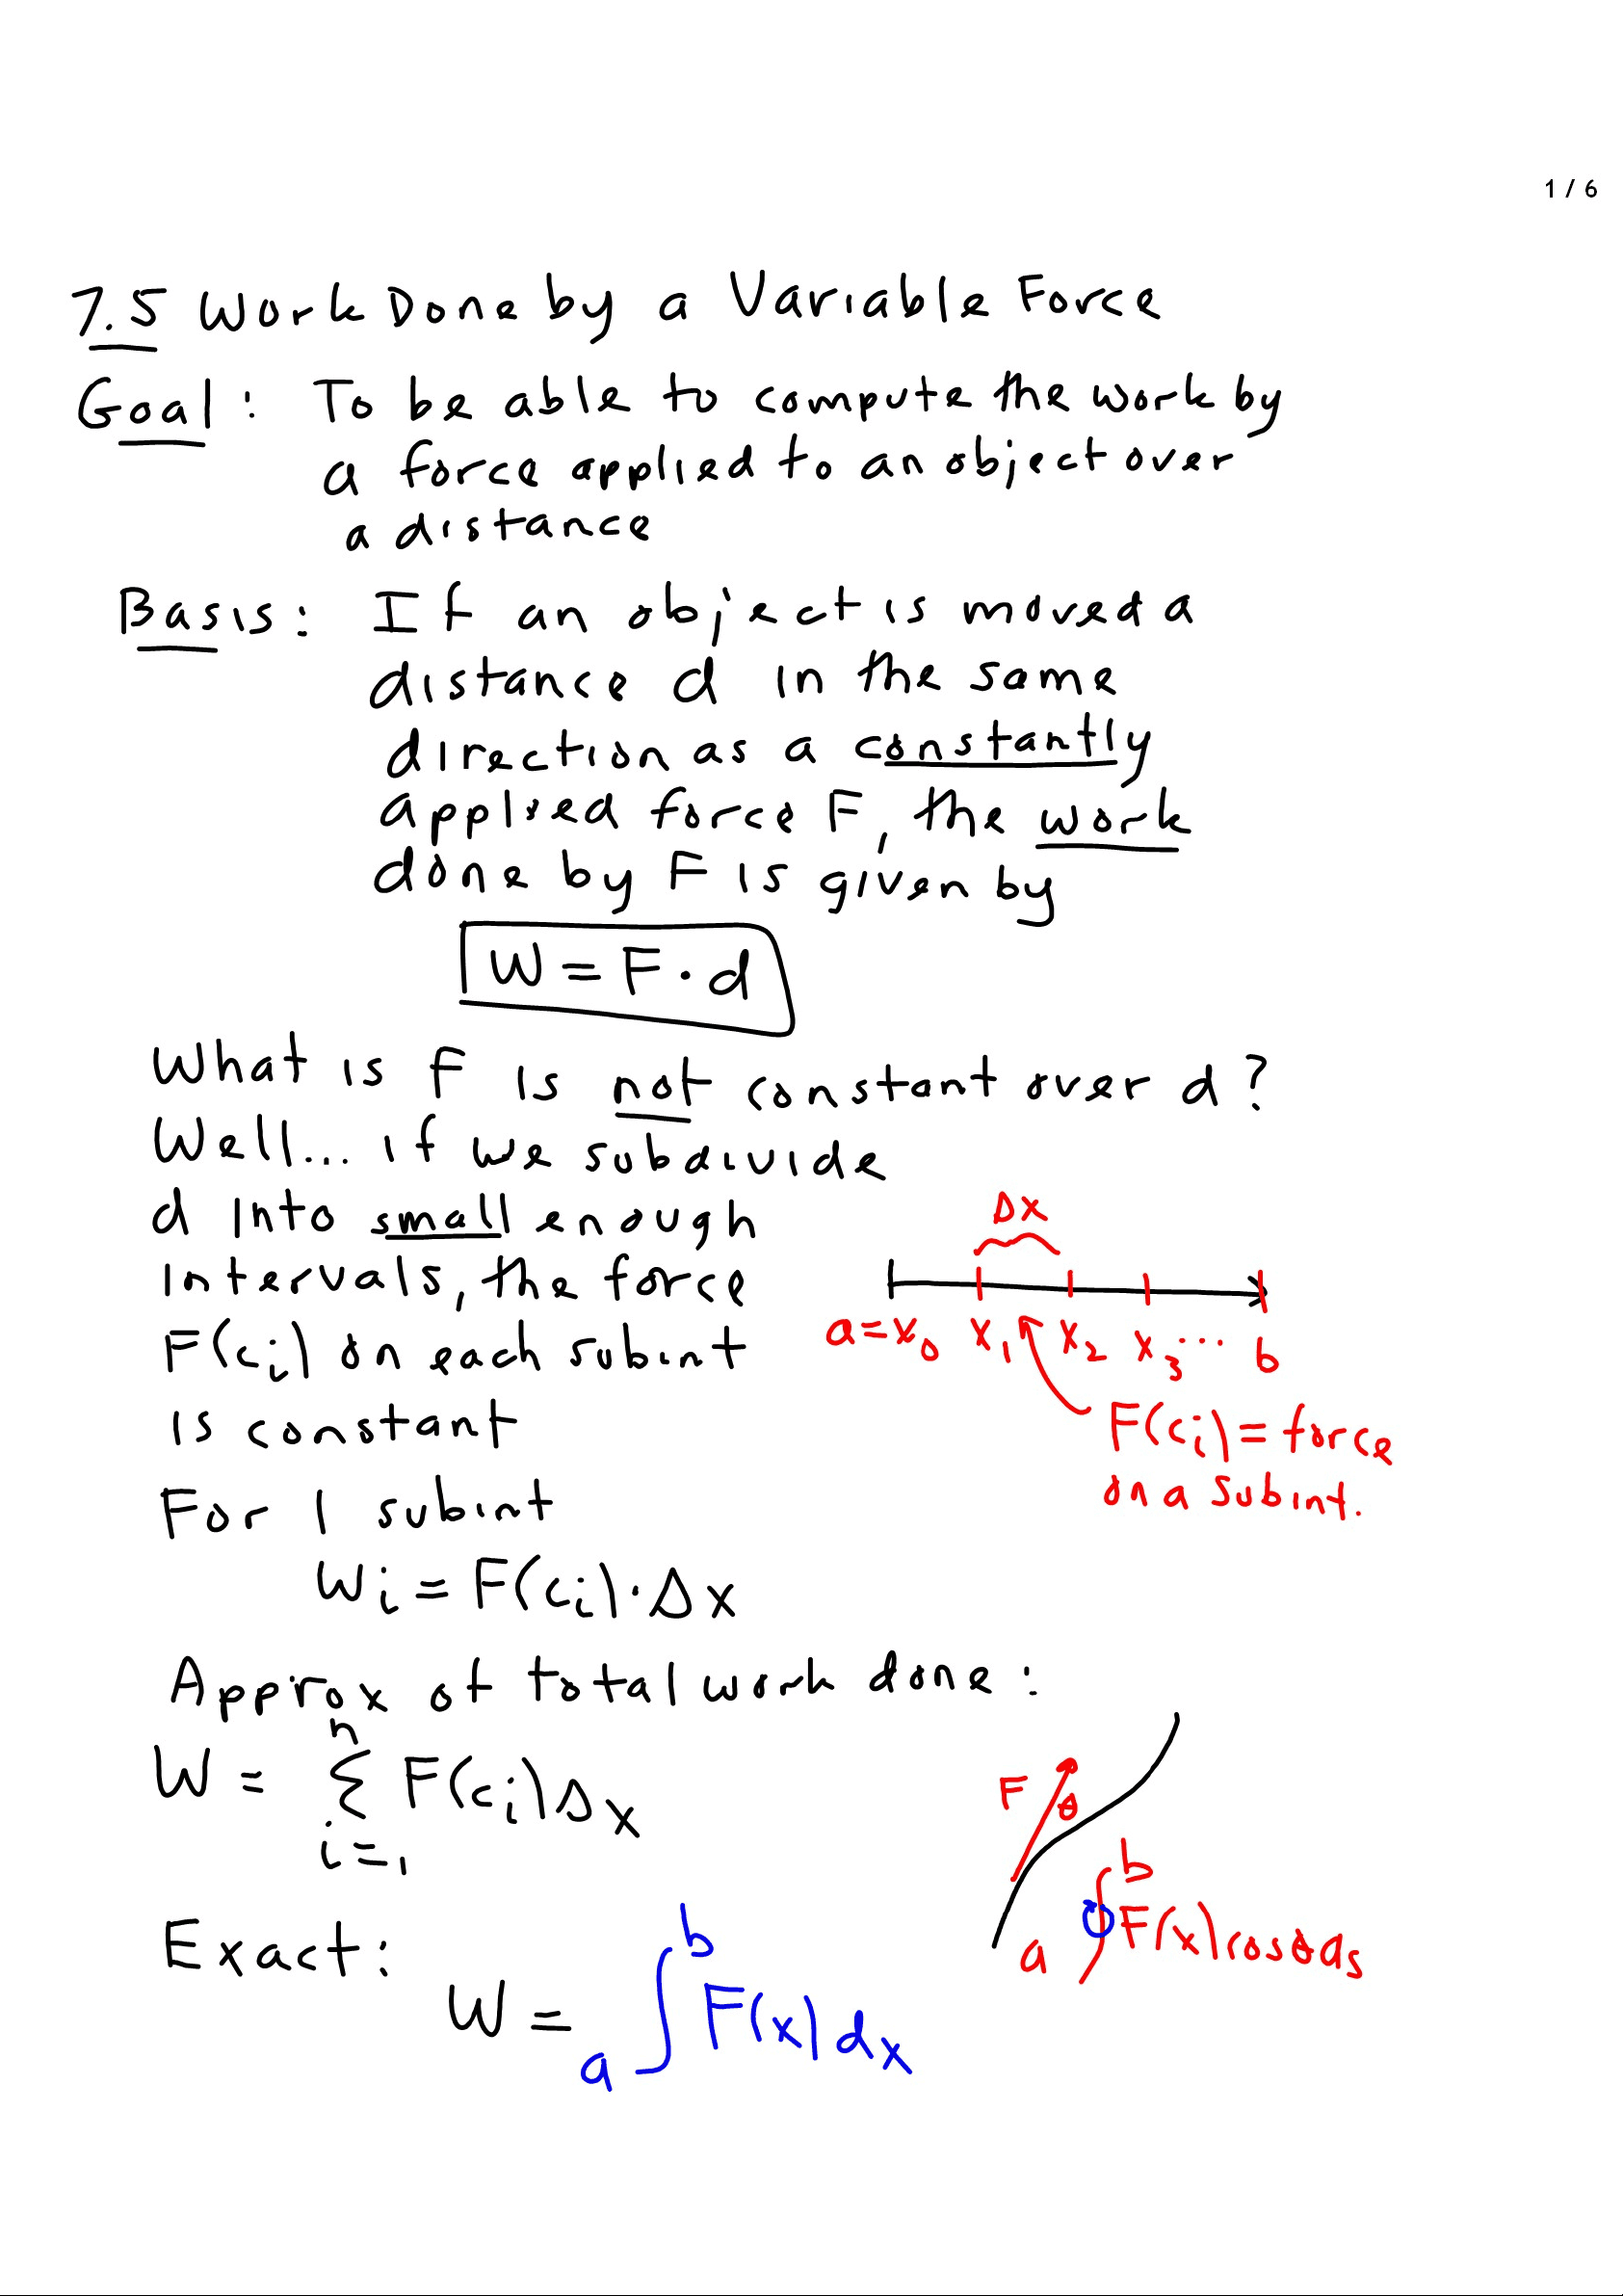 1 / 6
7.5 Work Done by a Variable Force
Goal: To be able to compute the work by
a force applied to an object over
a distance
Basis: If an object is moved a
distance d in the same
direction as a constantly
applied force F, the work
done by F is given by
W = F · d
What is F is not constant over d?
Well... if we subdivide
d into small enough
intervals, the force
F(ci) on each subint
is constant
Δx
a = x0 x1 x2 x3 ... b
F(ci) = force
on a subint.
For 1 subint
Wi = F(ci) · Δx
Approx of total work done:
W = n Σ i=1 F(ci) Δx
F θ
a ∫ b F(x) cosθ ds
Exact:
W = a ∫ b F(x) dx